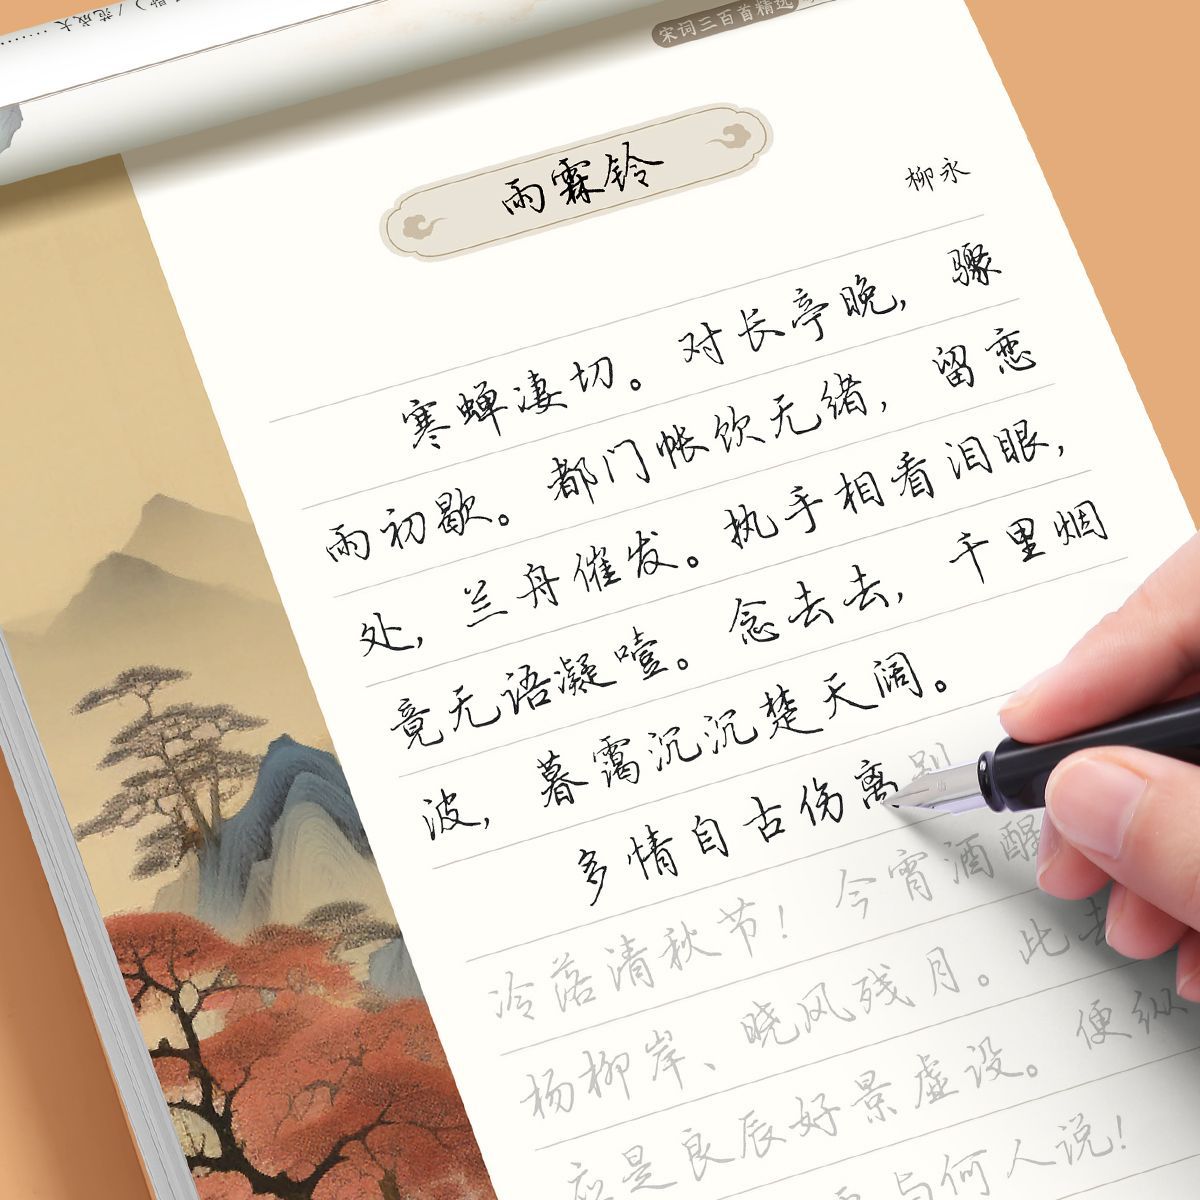 宋词三百首精选
雨霖铃
柳永
寒蝉凄切。对长亭晚，骤
雨初歇。都门帐饮无绪，留恋
处，兰舟催发。执手相看泪眼，
竟无语凝噎。念去去，千里烟
波，暮霭沉沉楚天阔。
多情自古伤离别
冷落清秋节！今宵酒醒
杨柳岸、晓风残月。此去
应是良辰好景虚设。便纵
与何人说！